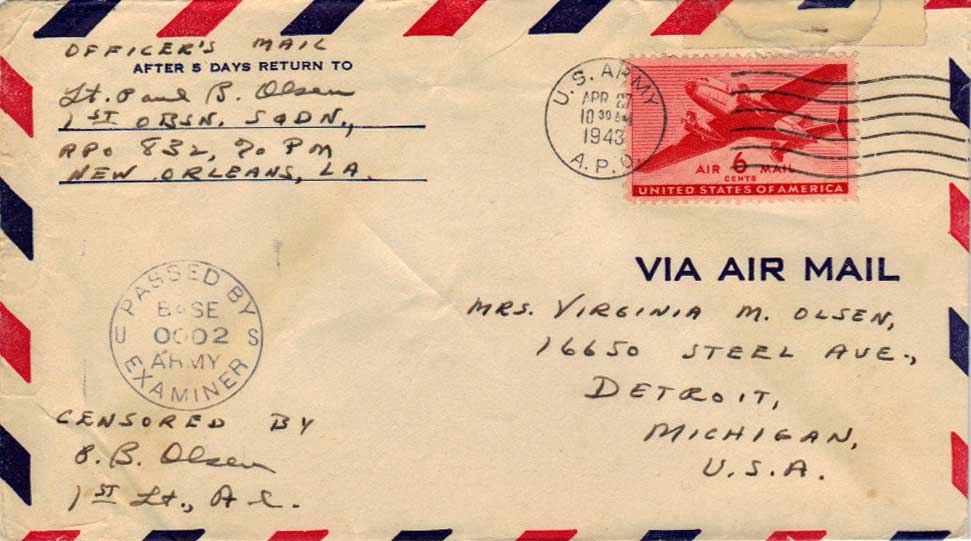 OFFICER'S MAIL
AFTER 5 DAYS RETURN TO
Lt. Paul B. Olsen
1ST OBSN. SQDN.,
APO 832, % PM
NEW ORLEANS, LA.
U.S. ARMY
APR 27
10 30 AM
1943
A.P.O.
AIR 6 MAIL
CENTS
UNITED STATES OF AMERICA
VIA AIR MAIL
MRS. VIRGINIA M. OLSEN,
16650 STEEL AVE.,
DETROIT,
MICHIGAN,
U.S.A.
PASSED BY
BASE
U 0002 S
ARMY
EXAMINER
CENSORED BY
P. B. Olsen
1ST Lt., A.C.